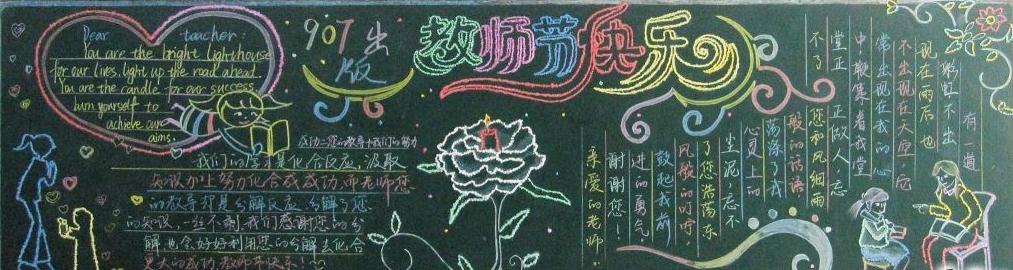 Dear teacher
You are the bright lighthouse
for our lives, light up the road ahead.
You are the candle for our success
burn yourself to
achieve our
aims.
907出
版
教师节快乐
成功=您的教导+我们的努力
我们的学习是化合反应,汲取
知识加上努力化合成成功.而老师您
的教导就是分解反应,分解了您
的知识,一丝不剩.我们感谢您的分
解,也会好好利用您的分解去化合
更大的成功.教师节快乐!
有一道
彩虹不出
现在雨后也
不出现在天空它
常出现在我的心
中 我堂
堂正正做人,忘
不了您和风细雨
般的话语,
荡涤了我
心灵上的
尘泥;忘不
了您浩荡东
风般的叮咛,
鼓起我前
进的勇气
谢谢您!
亲爱的老师